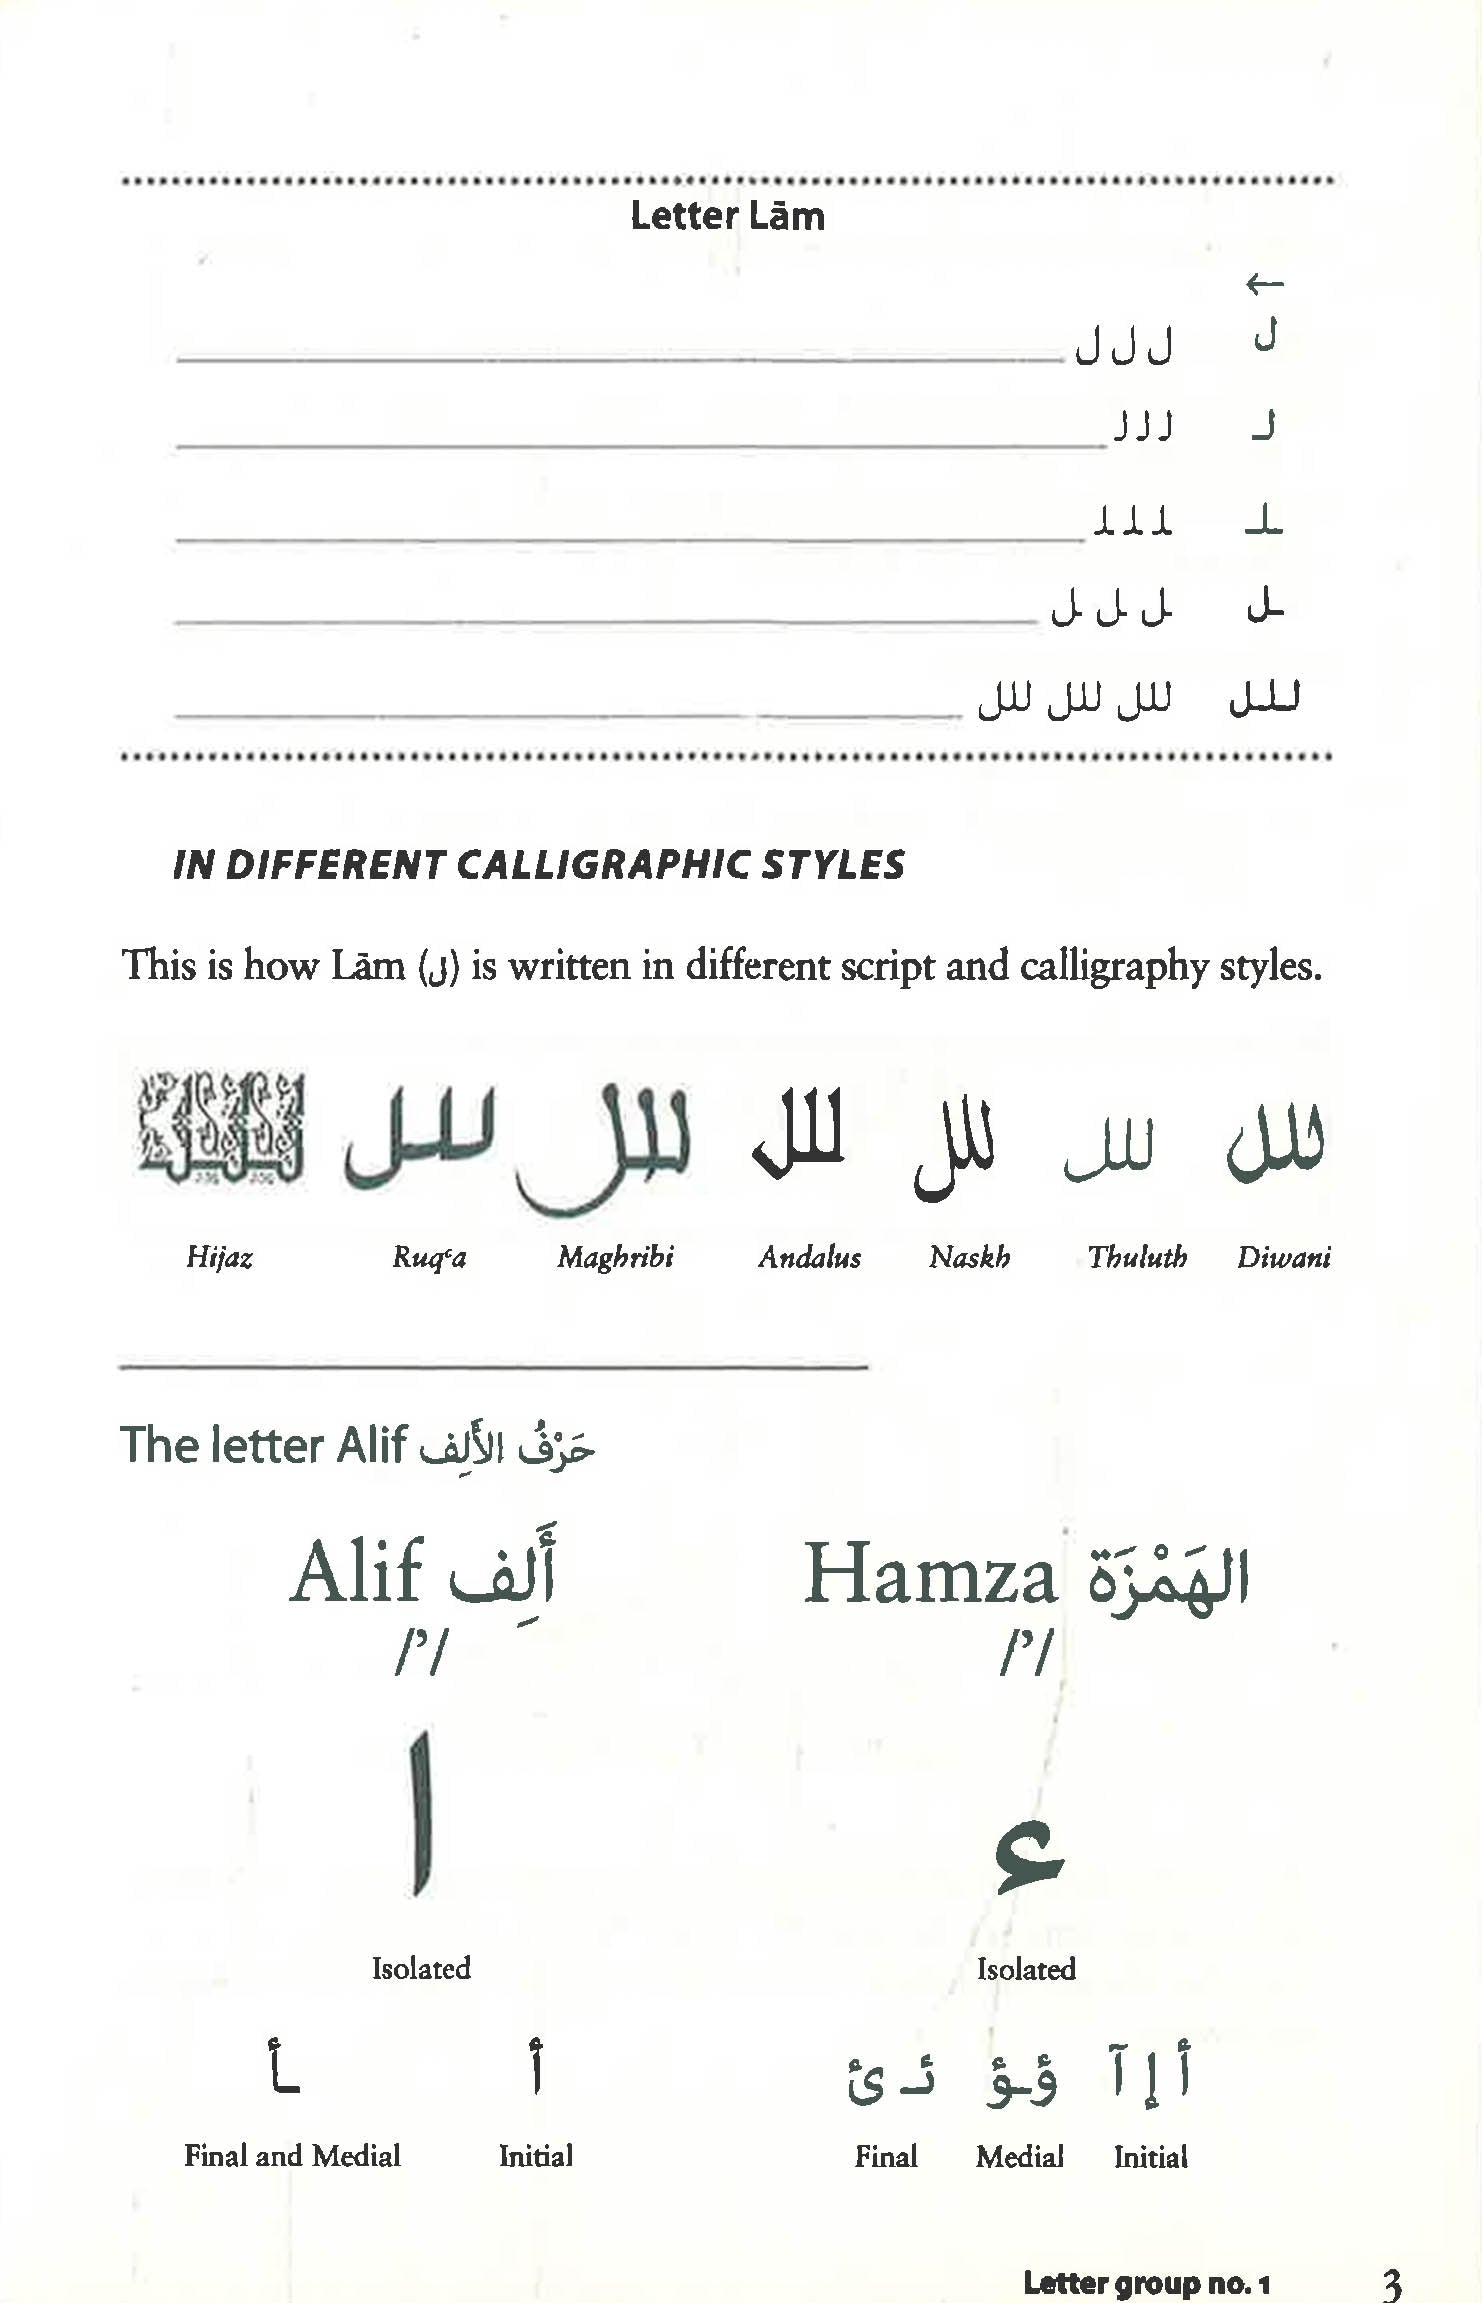 Letter Lām
←
ل ل ل ل
لـ لـ لـ لـ
ـلـ ـلـ ـلـ ـلـ
ـل ـل ـل ـل
للل للل للل للل
IN DIFFERENT CALLIGRAPHIC STYLES
This is how Lām (ل) is written in different script and calligraphy styles.
للل للل للل للل للل للل
Hijaz Ruqʿa Maghribi Andalus Naskh Thuluth Diwani
The letter Alif حَرْفُ الأَلِف
Alif أَلِف Hamza الهَمْزَة
/ʾ/ /ʾ/
ا ء
Isolated Isolated
ـأ أ أ إ آ ؤ ـؤ ئـ ئ
Final and Medial Initial Final Medial Initial
Letter group no. 1 3